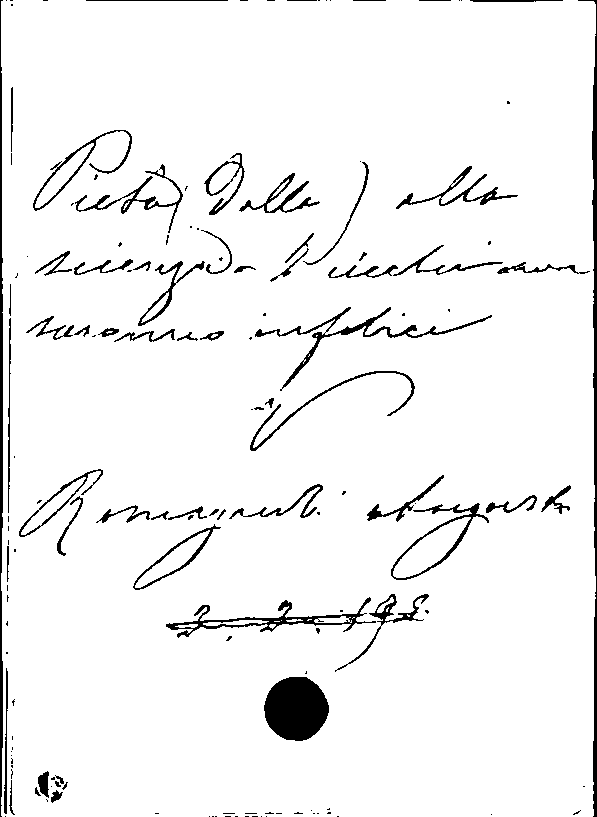 Pietà (Dalla) alla
scienza - I ciechi non
saranno infelici
Romagnoli Augusto
2. 2. 195